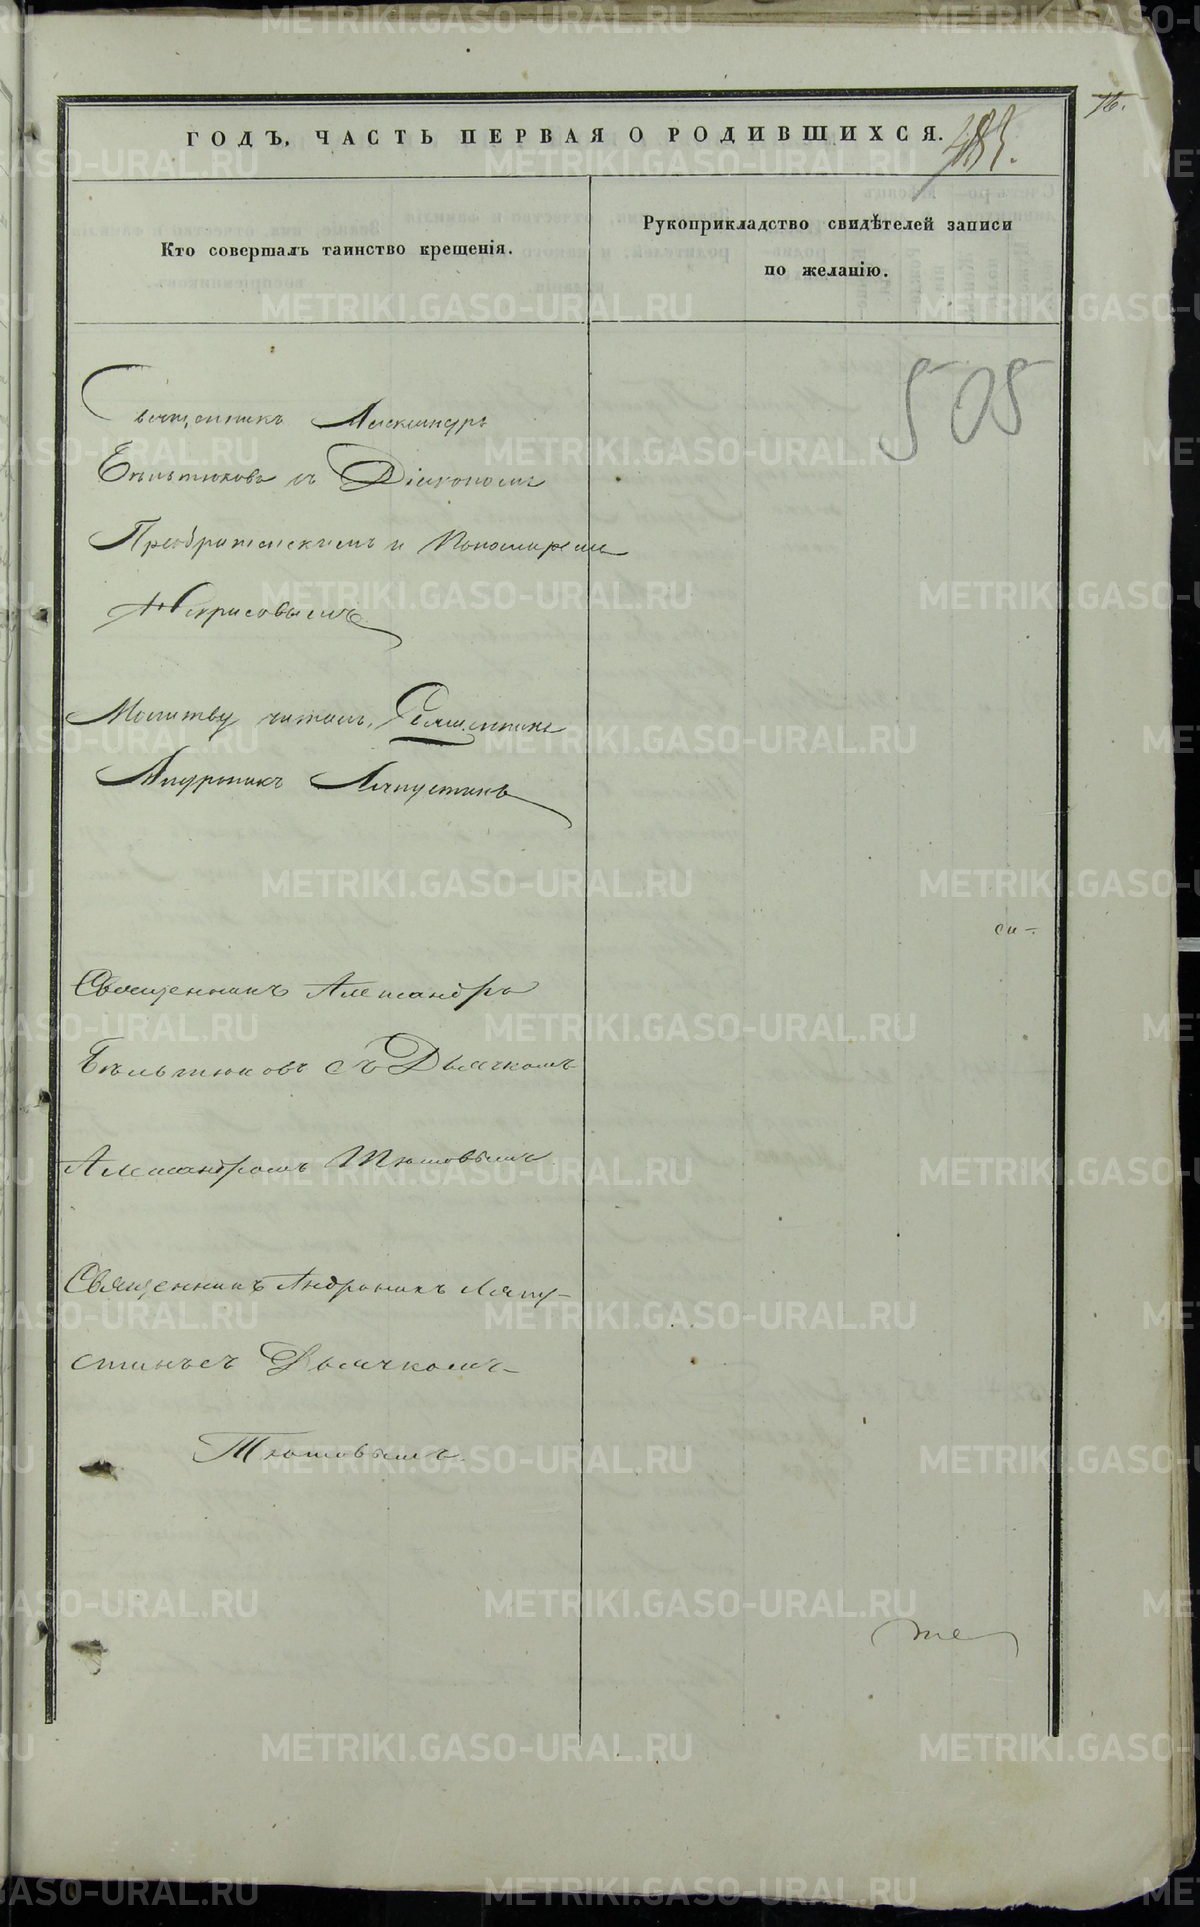 76.
ГОДЪ, ЧАСТЬ ПЕРВАЯ О РОДИВШИХСЯ.
Кто совершалъ таинство крещенія.
Рукоприкладство свидѣтелей записи
по желанію.
505
Священникъ Александръ
Бѣльтюковъ съ Діакономъ
Преображенскимъ и Пономаремъ
Некрасовымъ
Молитву читалъ Священникъ
Андроникъ Ляпустинъ
си-
Священникъ Александръ
Бѣльтюковъ съ Дьячкомъ
Александромъ Тютовымъ
Священникъ Андроникъ Ляпу-
стинъ съ Дьячкомъ
Тютовымъ
те
METRIKI.GASO-URAL.RU